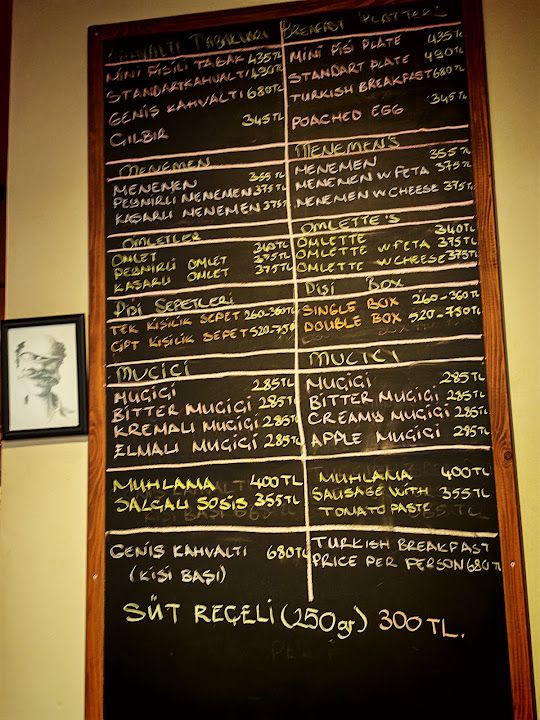 KAHVALTI TABAKLARI
MİNİ PİŞİLİ TABAK 435TL
STANDART KAHVALTI 490TL
GENİŞ KAHVALTI 680TL
ÇILBIR 345TL
MENEMEN
MENEMEN 355TL
PEYNİRLİ MENEMEN 375TL
KAŞARLI MENEMEN 375TL
OMLETLER
OMLET 340TL
PEYNİRLİ OMLET 375TL
KAŞARLI OMLET 375TL
PİŞİ SEPETLERİ
TEK KİŞİLİK SEPET 260-360TL
ÇİFT KİŞİLİK SEPET 520-750
MUCİCİ
MUGİGİ 285TL
BİTTER MUGİGİ 285TL
KREMALI MUGİGİ 285TL
ELMALI MUGİGİ 285TL
MUHLAMA 400TL
SALÇALI SOSİS 355TL
GENİŞ KAHVALTI 680TL
(KİŞİ BAŞI)
BREAFAST PLATTER'S
MİNİ PİŞİ PLATE 435TL
STANDART PLATE 490TL
TURKISH BREAKFAST 680TL
POACHED EGG 345TL
MENEMEN'S
MENEMEN 355TL
MENEMEN W FETA 375TL
MENEMEN W CHEESE 375TL
OMLETTE'S
OMLETTE 340TL
OMLETTE W FETA 375TL
OMLETTE W CHEESE 375TL
PİŞİ BOX
SINGLE BOX 260-360TL
DOUBLE BOX 520-750TL
MUCİCİ
MUGİGİ 285TL
BITTER MUGİGİ 285TL
CREAMY MUGİGİ 285TL
APPLE MUGİGİ 285TL
MUHLAMA 400TL
SAUSAGE WITH 355TL
TOMATO PASTE
TURKISH BREAKFAST
PRICE PER PERSON 680TL
SÜT REÇELİ (250gr) 300TL.